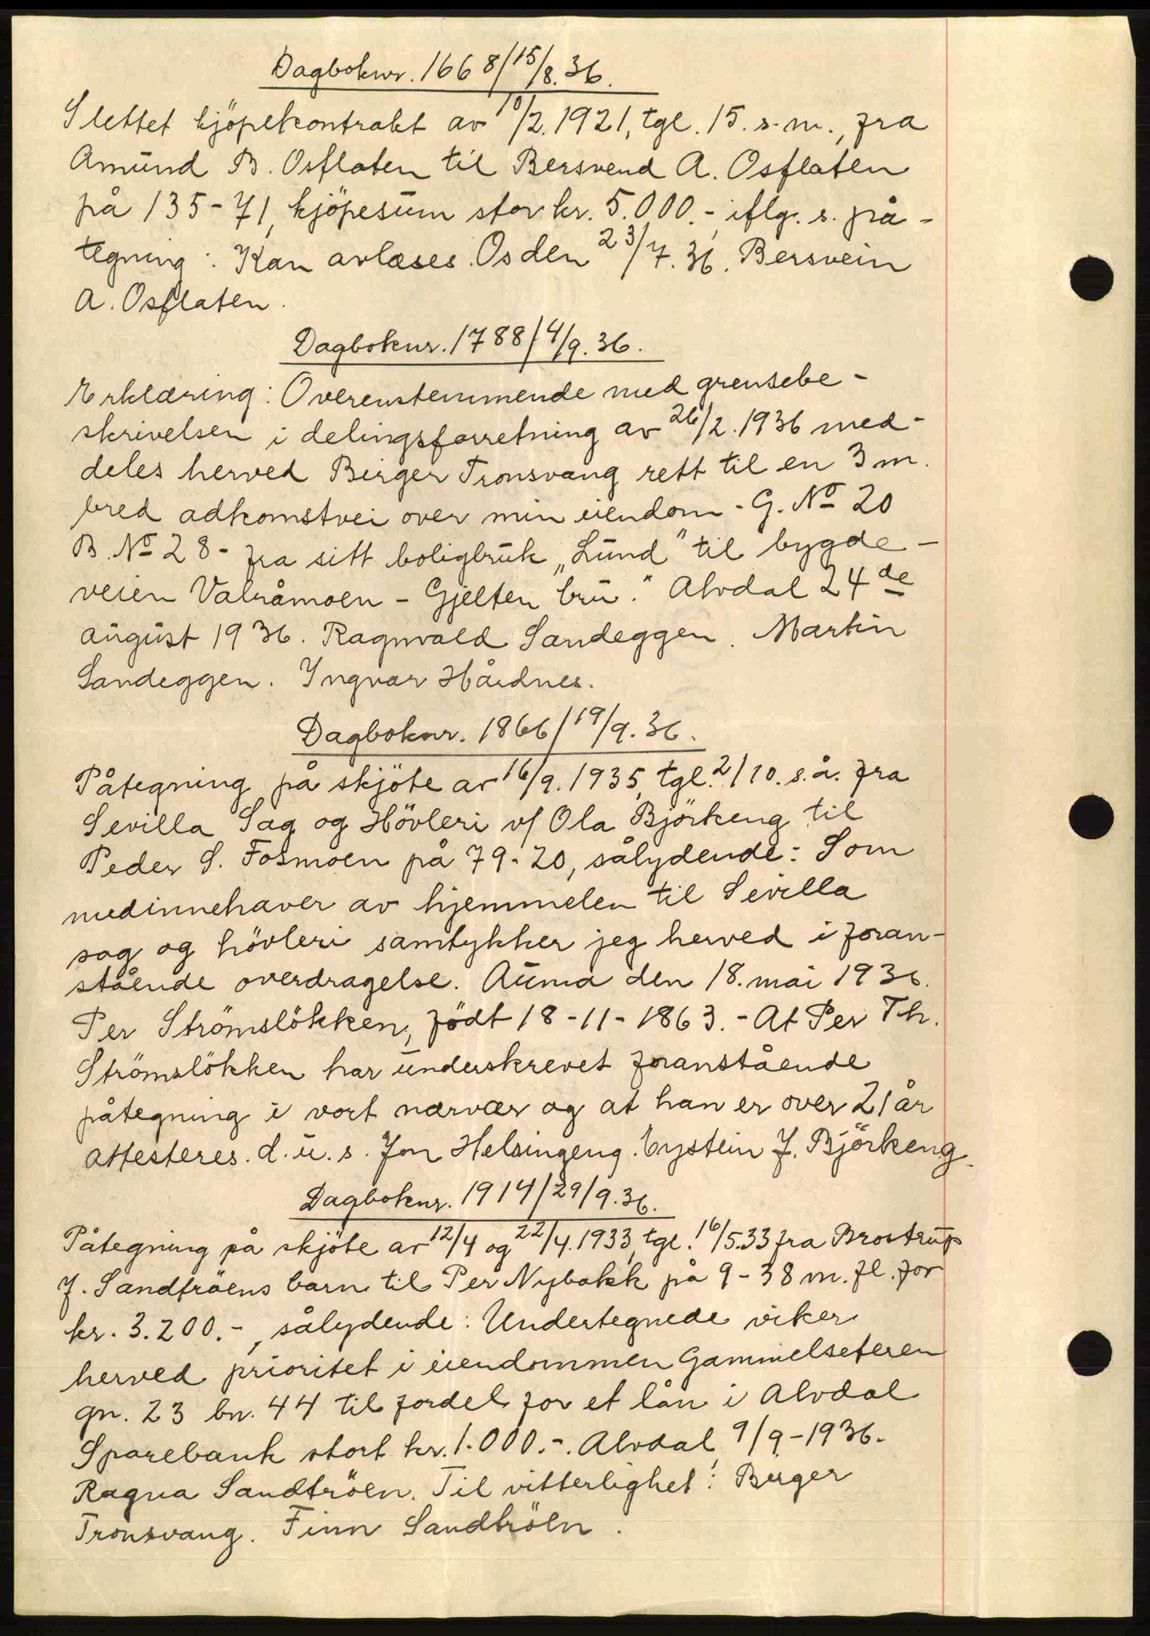 Dagboknr. 1668/15/8.36.
Slettet kjöpekontrakt av 10/2.1921, tgl. 15. s.m., fra
Amund B. Osflaten til Bersvend A. Osflaten
på 135-71, kjöpesum stor kr. 5.000.- iflg. s. på-
tegning: Kan avlæses. Os den 23/7.36. Bersvein
A. Osflaten.
Dagboknr. 1788/4/9.36.
Erklæring: Overenstemmende med grensebe-
skrivelsen i delingsforretning av 26/2.1936 med-
deles herved Birger Tronsvang rett til en 3 m.
bred adkomstvei over min eiendom - G. No 20
B. No 28 - fra sitt boligbruk „Lund" til bygde-
veien Valråmoen - Gjelten bru." Alvdal 24 de
august 1936. Ragnvald Sandeggen. Martin
Sandeggen. Yngvar Hårdnes.
Dagboknr. 1866/19/9.36.
Påtegning på skjöte av 16/9.1935, tgl. 2/10. s.å. fra
Sevilla Sag og Hövleri v/ Ola Björkeng til
Peder S. Fosmoen på 79-20, sålydende: Som
medinnehaver av hjemmelen til Sevilla
sag og hövleri samtykker jeg herved i foran-
stående overdragelse. Auma den 18. mai 1936.
Per Strömslökken, födt 18-11-1863. - At Per Th.
Strömslökken har underskrevet foranstående
påtegning i vort nærvær og at han er over 21 år
attesteres. d.u.s. Jon Helsingeng. Eystein J. Björkeng.
Dagboknr. 1914/29/9.36.
Påtegning på skjöte av 12/4 og 22/4.1933, tgl. 16/5.33 fra Brostrup
J. Sandtröens barn til Per Nybakk på 9-38 m.fl. for
kr. 3.200.-, sålydende: Undertegnede viker
herved prioritet i eiendommen Gammelseteren
gn. 23 bn. 44 til fordel for et lån i Alvdal
Sparebank stort kr. 1.000.-. Alvdal, 9/9-1936.
Ragna Sandtröen. Til vitterlighet: Birger
Tronsvang. Finn Sandtröen.